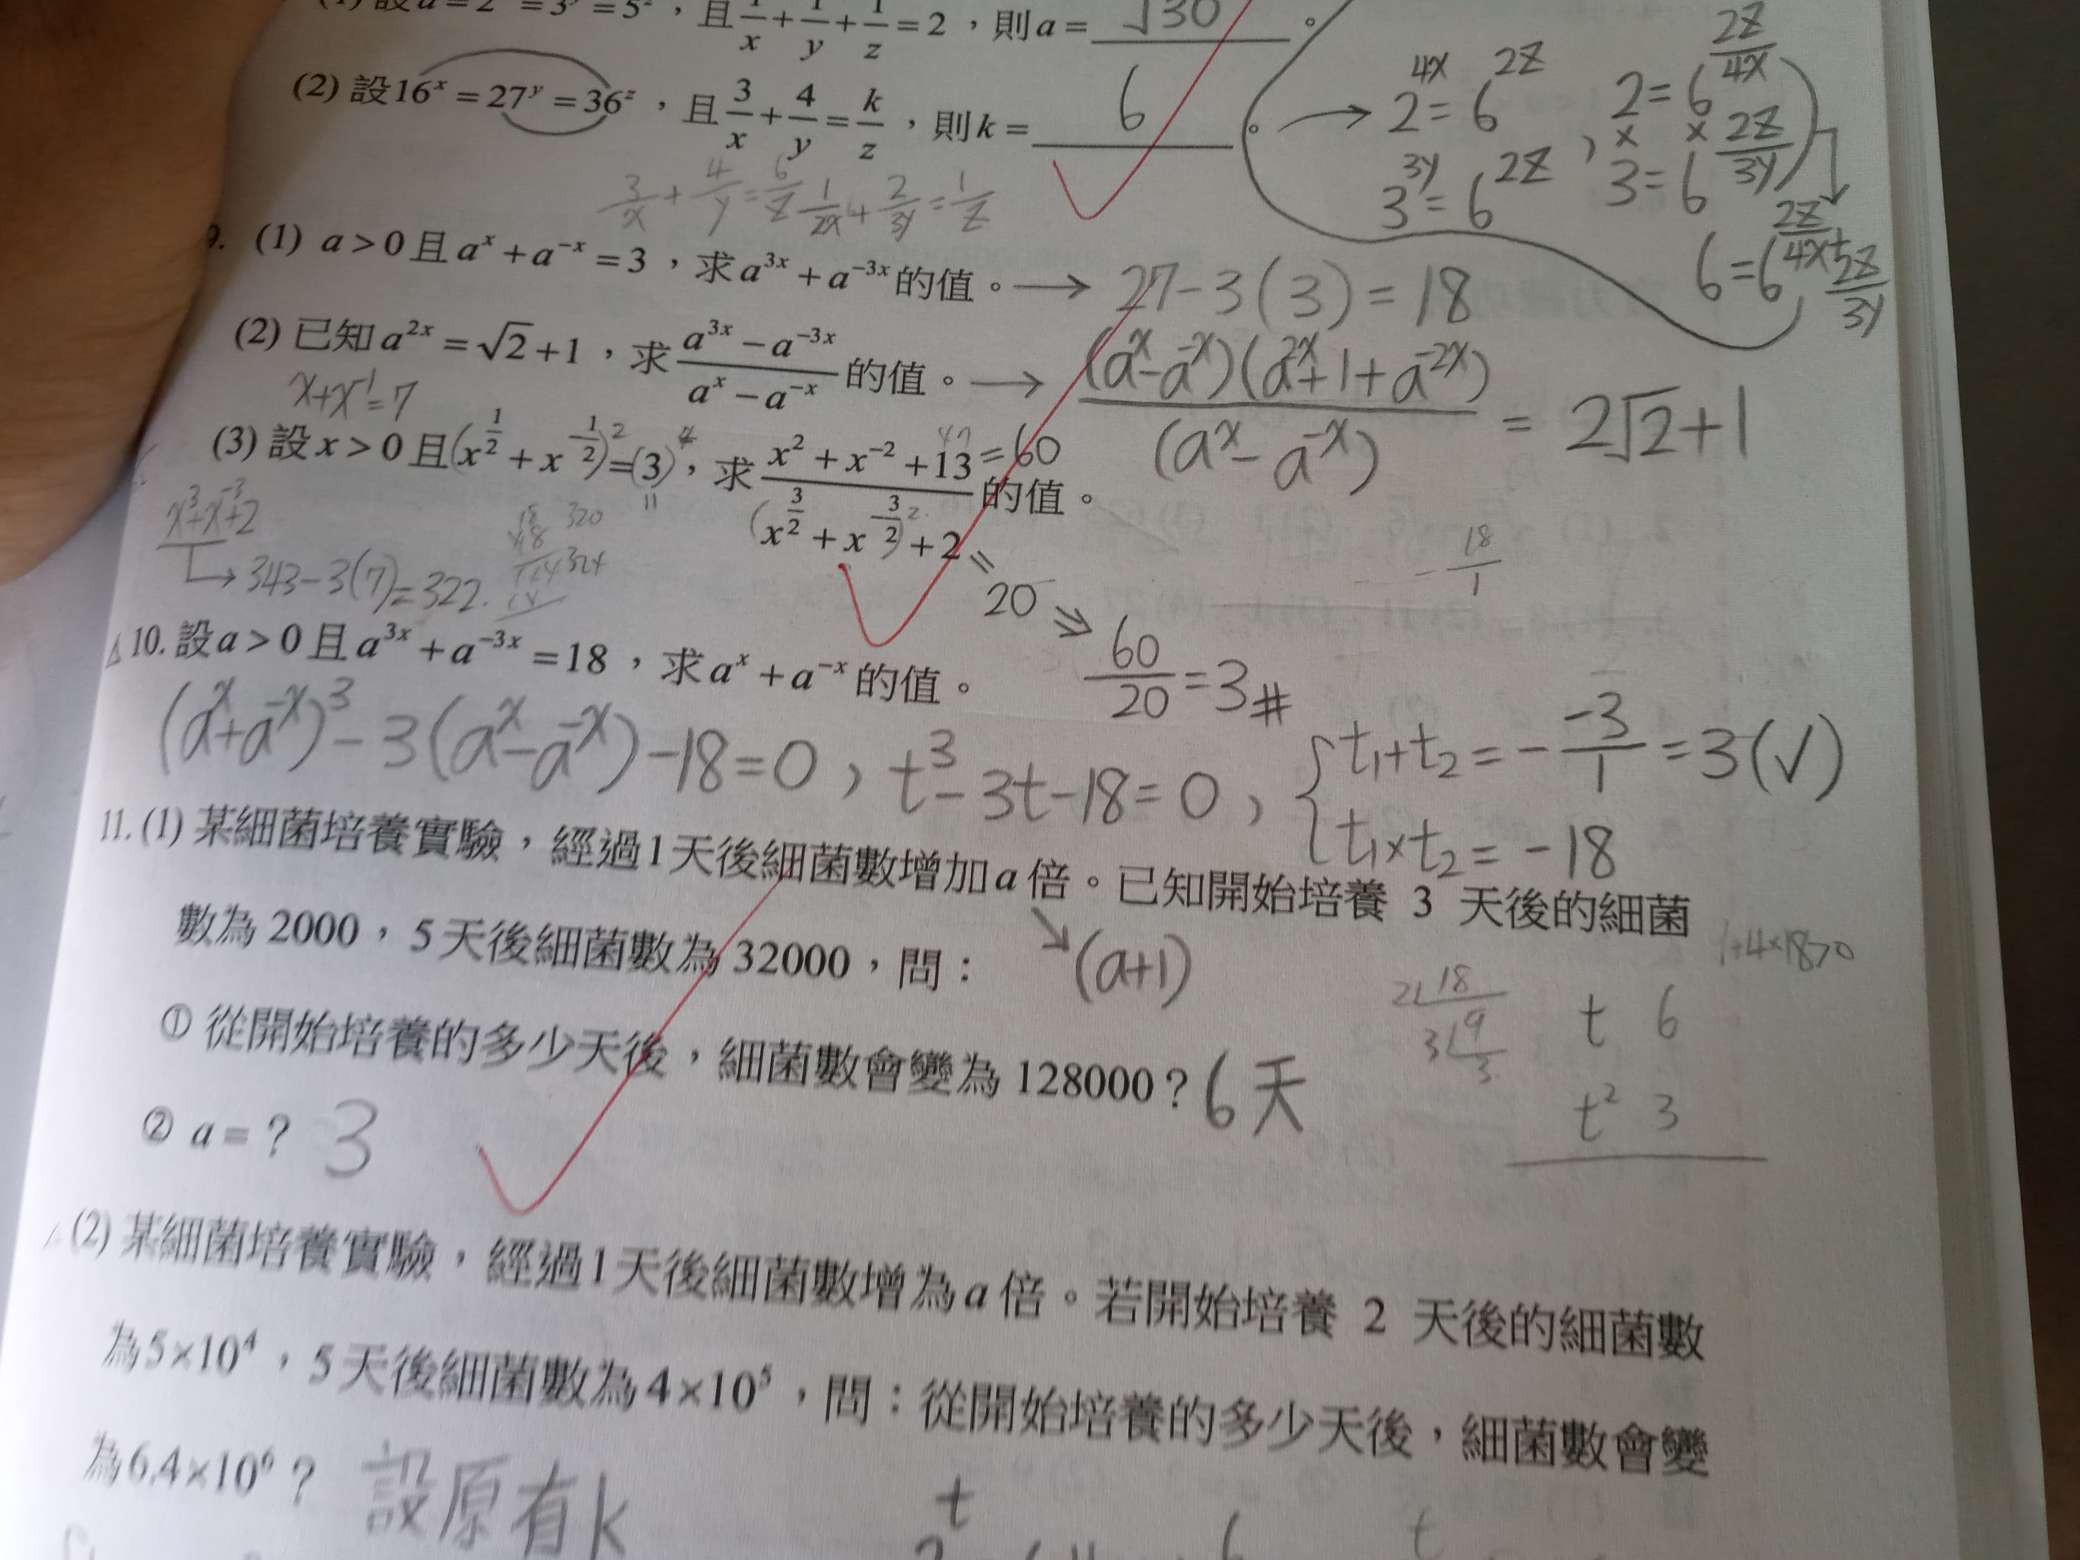 (1) 設 a = 2ˣ = 3ʸ = 5ᶻ，且 1/x + 1/y + 1/z = 2，則 a = √30。
(2) 設 16ˣ = 27ʸ = 36ᶻ，且 3/x + 4/y = k/z，則 k = 6。
→ 2^(4x) = 6^(2z) , 2 = 6^(2z/4x)
3^(3y) = 6^(2z) × 3 = 6^(2z/3y)
6 = 6^(2z/4x + 2z/3y)
3/x + 4/y = 6/z
1/2x + 2/3y = 1/z
9. (1) a > 0 且 aˣ + a⁻ˣ = 3，求 a³ˣ + a⁻³ˣ 的值。→ 27 - 3(3) = 18
(2) 已知 a²ˣ = √2 + 1，求 (a³ˣ - a⁻³ˣ)/(aˣ - a⁻ˣ) 的值。→ (aˣ - a⁻ˣ)(a²ˣ + 1 + a⁻²ˣ)/(aˣ - a⁻ˣ) = 2√2 + 1
x + x⁻¹ = 7
(3) 設 x > 0 且 (x^(1/2) + x^(-1/2))² = (3)²，求 (x² + x⁻² + 13)/(x^(3/2) + x^(-3/2) + 2) 的值。
47
= 60
= 20 ⇒ 60/20 = 3 #
x³ + x⁻³ + 2
→ 343 - 3(7) = 322.
18 320
18
144 324
18
18/1
△ 10. 設 a > 0 且 a³ˣ + a⁻³ˣ = 18，求 aˣ + a⁻ˣ 的值。
(aˣ + a⁻ˣ)³ - 3(aˣ - a⁻ˣ) - 18 = 0 , t³ - 3t - 18 = 0 , { t₁ + t₂ = - -3/1 = 3 (√)
t₁ × t₂ = -18
11. (1) 某細菌培養實驗，經過1天後細菌數增加 a 倍。已知開始培養 3 天後的細菌
數為 2000，5 天後細菌數為 32000，問：
(a+1)
1+4×18>0
2 18
3 9
3
t 6
t² 3
① 從開始培養的多少天後，細菌數會變為 128000？ 6天
② a = ？ 3
(2) 某細菌培養實驗，經過1天後細菌數增為 a 倍。若開始培養 2 天後的細菌數
為 5×10⁴，5 天後細菌數為 4×10⁵，問：從開始培養的多少天後，細菌數會變
為 6.4×10⁶？
設原有k
t
t